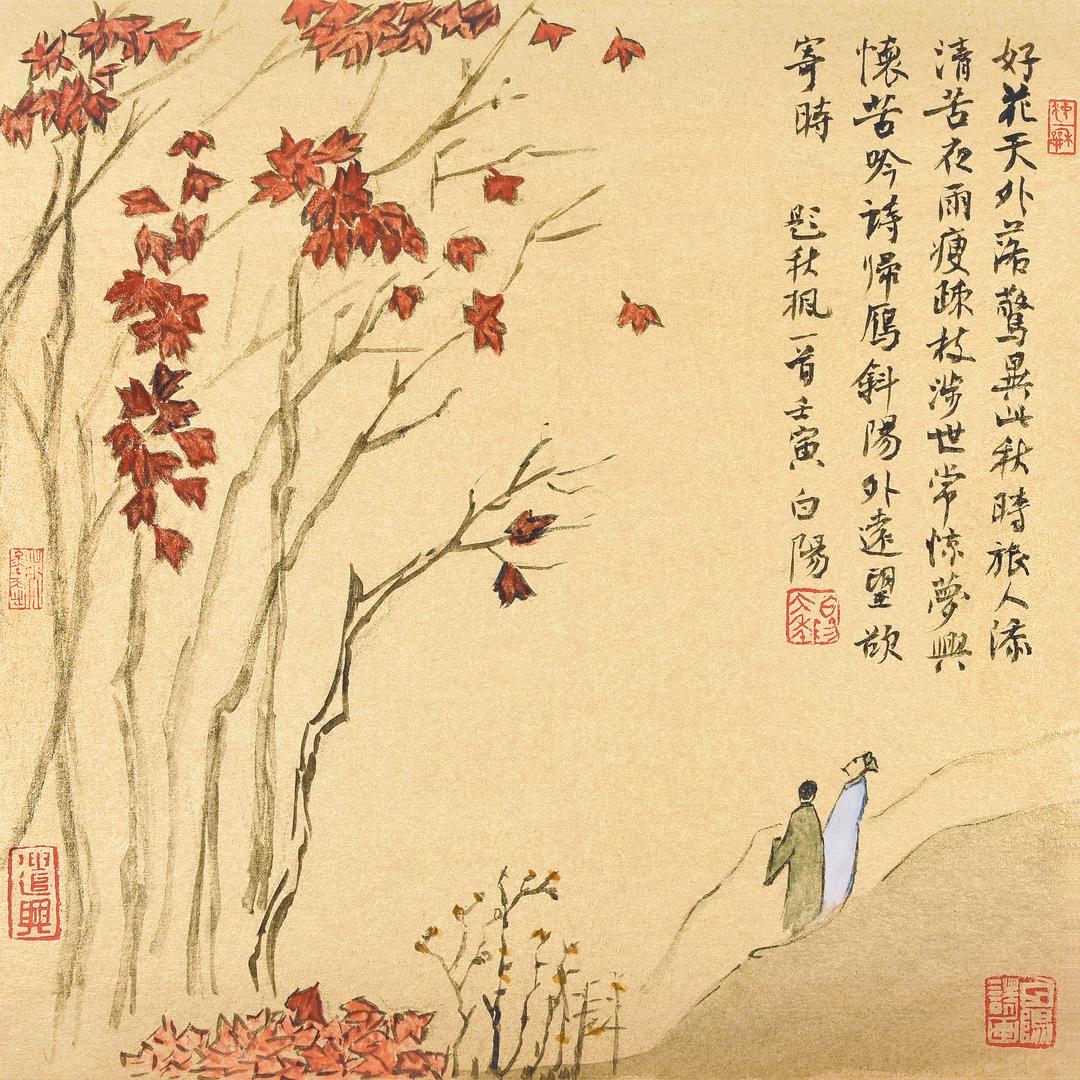 好花天外落驚異此秋時旅人添
清苦夜雨瘦疎枝涉世常惊夢興
懷苦吟詩歸雁斜陽外遠望欲
寄時
題秋枫一首壬寅 白陽